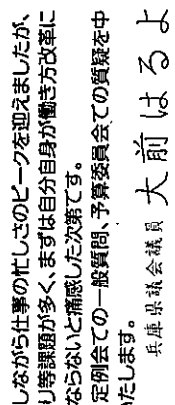 しながら仕事の忙しさのピークを迎えましたが、
り等課題が多く、まずは自分自身が働き方改革に
ならないと痛感した次第です。
定例会での一般質問、予算委員会での質疑を中
いたします。
兵庫県議会議員 大前はるよ